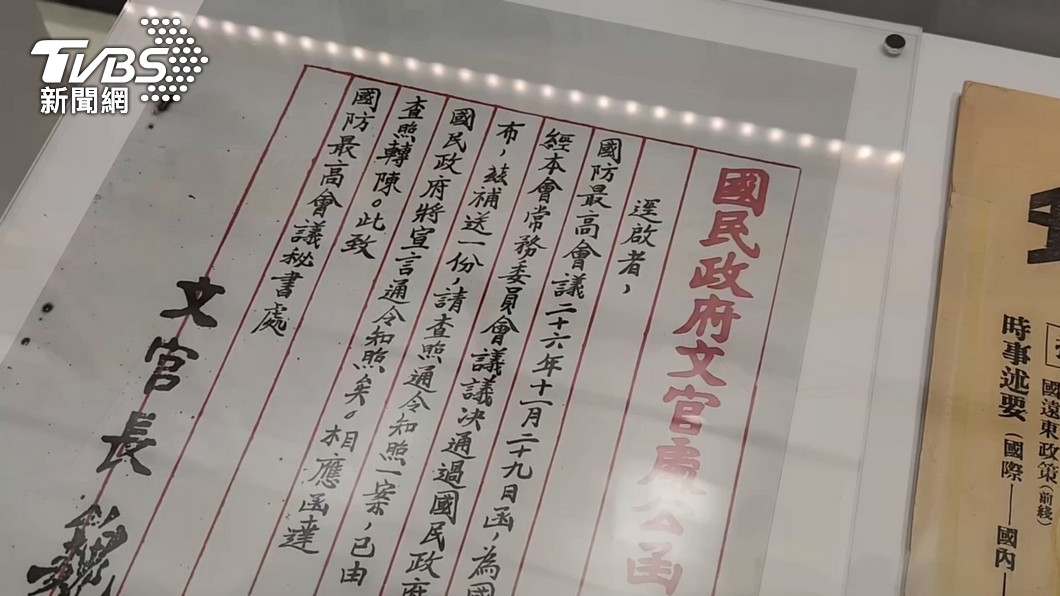 TVBS
新聞網
國民政府文官處公函
逕啟者，
國防最高會議二十六年十一月二十九日函，為國
經本會常務委員會議議決通過國民政府
布，茲補送一份，請查照通令知照一案，已由
國民政府將宣言通令知照矣。相應函達
查照轉陳。此致
國防最高會議秘書處
文官長魏
時事述要（國際——國內—
國遠東政策（前綫）